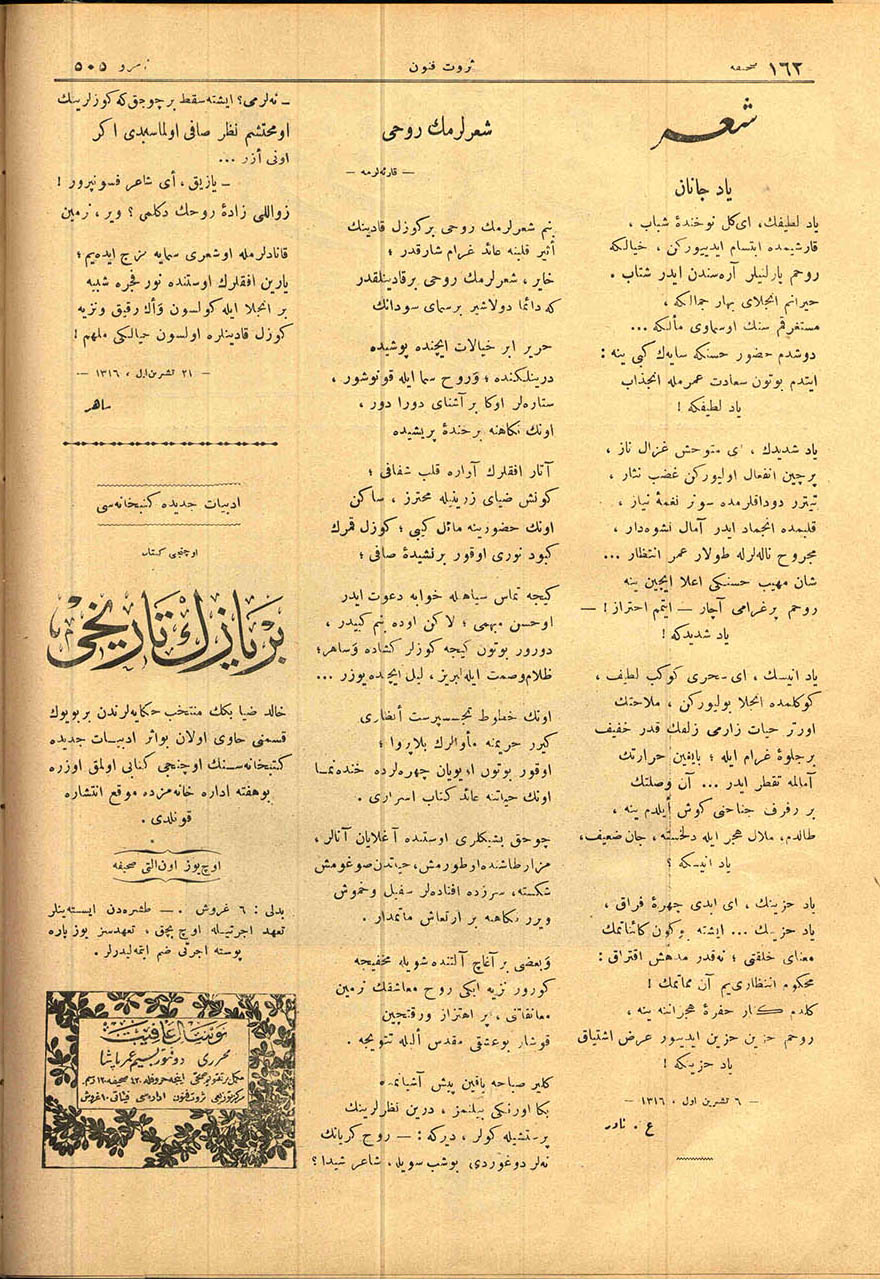 صحیفه ١٦٢
ثروت فنون
نومرو ٥٠٥
شعر
یاد جانان
یاد لطیفك، ای گل نوخندهٔ شباب ،
قارشیمده ابتسام ایدییورکن ، خیالکه
روحم پارلتیلر آره‌سندن ایدر شتاب .
حیرانم انجلای بهار جمالکه ،
مستغرقم سنك اوسماوی مآلکه ...
دوشدم حضور حسنکه سایه‌ك کبی ینه :
ایتدم بوتون سعادت عمرمله انجذاب
یاد لطیفکه !
یاد شدیدك ، ای متوحش غزال ناز ،
پرچین انفعال اولیورکن غضب نثار ،
تیترر دوداقلرمده سونر نغمهٔ نیاز ،
قلبمده انجماد ایدر آمال نشوه‌دار ،
مجروح ناله‌لرله طولار عمر انتظار ...
شان مهیب حسنکی اعلا ایچین ینه
روحم پرغرامی آچار — ایتمم احتراز ! —
یاد شدیدکه !
یاد انیسك ، ای سحری کوکب لطیف ،
کوکلمده انجلا بولیورکن ، ملاحتك
اورتر حیات زارمی زلفك قدر خفیف
برجلوهٔ غرام ایله ؛ بایغین حرارتك
آمالمه تقطر ایدر ... آن وصلتك
بر رفرف جناحنی کوش ایلدم ینه ،
طالدم، ملال هجر ایله دلخسته ، جان ضعیف،
یاد انیسکه ؟
یاد حزینك ، ای ابدی چهرهٔ فراق ،
یاد حزینك ... ایشته بوکون کائناتمك
معنای خلقتی ؛ نه‌قدر مدهش افتراق :
محکوم انتظاری‌یم آن مماتمك !
کلدم کنار حفرهٔ هجراننه ینه ،
روحم حزین حزین ایدییور عرض اشتیاق
یاد حزینکه !
— ٦ تشرین اول ، ١٣١٦ —
ع . نادر
شعرلرمك روحی
— قارئه‌لرمه —
بنم شعرلرمك روحی برکوزل قادینك
أثیر قلبنه عائد غرام شارقدر ؛
خایر ، شعرلرمك روحی برقادینلقدر
که دائما دولاشیر برسمای سودانك
حریر ابر خیالات ایچنده پوشیده
درینلکنده ؛ وَروح سما ایله قونوشور ،
ستاره‌لر اوکا برآشنای دورا دور ،
اونك نکاهنه برخندهٔ پریشیده
آتار افقلرك آواره قلب شفافی ؛
کونش ضیای زرینیله محترز ، ساکن
اونك حضورینه مائل کبی ؛ کوزل قمرك
کبود نوری اوقور برنشیدهٔ صافی ؛
کیجه تماس سیاهیله خوابه دعوت ایدر
اوحسن مبهمی ؛ لاکن اوده بنم کبیدر ،
دورور بوتون کیجه کوزلر کشاده وَساهر؛
ظلام وصمت ایله لبریز ، لیل ایچنده یوزر ...
اونك خطوط تجسپرست أنظاری
کیرر حریمنه مأوالرك بلاپروا ؛
اوقور بوتون اویویان چهره‌لرده خنده‌نما
اونك حیاتنه عائد کتاب اسراری .
چوجق بشیکلری اوستنده آغلایان آنالر ،
مزار طاشنده اوطورمش، حیاتدن صوغومش
شکسته، سرزده افتاده‌لر سفیل وخموش
ویرر نکاهنه بر ارتعاش ماتمدار .
وَبعضی بر آغاچ آلتنده شویله مخفیجه
کورور نزیه ایکی روح معاشقك نرمین
معانقاتنی ، پر اهتزاز ورقتچین
قوشار بوعشقی مقدس ألیله تتویجه .
کلیر صباحه یاقین پیش آشیانمده
بکا اورنکی بیلنمز ، درین نظرلرینك
پرستشیله کولر ، دیرکه : — روح کریانك
نه‌لر دوغوردی بوشب سویله ، شاعر شیدا ؟
— نه‌لرمی؟ ایشته سقط برچوجق که کوزلرینك
اومحتشم نظر صافی اولماسیدی اکر
اونی أزر ...
— یازیق ، أی شاعر فسونپرور !
زواللی زادهٔ روحك دکلمی ؟ ویر ، نرمین
قانادلرمله اوشعری سمایه مزج ایده‌یم ؛
یارین افقلرك اوستنده نور فجره شبیه
بر انجلا ایله کولسون وَأك رقیق ونزیه
کوزل قادینلره اولسون خیالکی ملهم !
— ٢١ تشرین اول ، ١٣١٦ —
ساهر
ادبیات جدیده کتبخانه‌سی
اوچنجی کتاب
بر یازك تاریخی
خالد ضیا بکك منتخب حکایه‌لرندن بر بویوك
قسمنی حاوی اولان بواثر ادبیات جدیده
کتبخانه‌سنك اوچنجی کتابی اولمق اوزره
بوهفته اداره خانه‌مزده موقع انتشاره
قونلدی .
اوچ یوز اون‌التی صحیفه
بدلی : ٦ غروش . — طشره‌دن ایسته‌ینلر
تعهد اجرتیله اوچ بچق ، تعهدسز یوز پاره
پوسته اجرتی ضم ایتمه‌لیدرلر .
نوسال عافیت
محرری دوقتور بسیم عمر پاشا
مرکز توزیعی ثروت فنون اداره‌سی فیئاتی ١٠ غروش